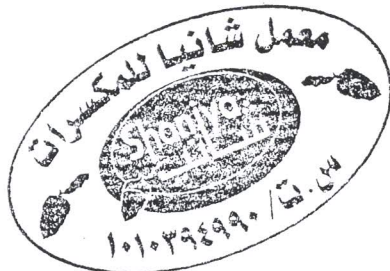 معمل شانيا للمكسرات
Shaniya
س.ت/١٠١٠٣٩٤٩٩٠